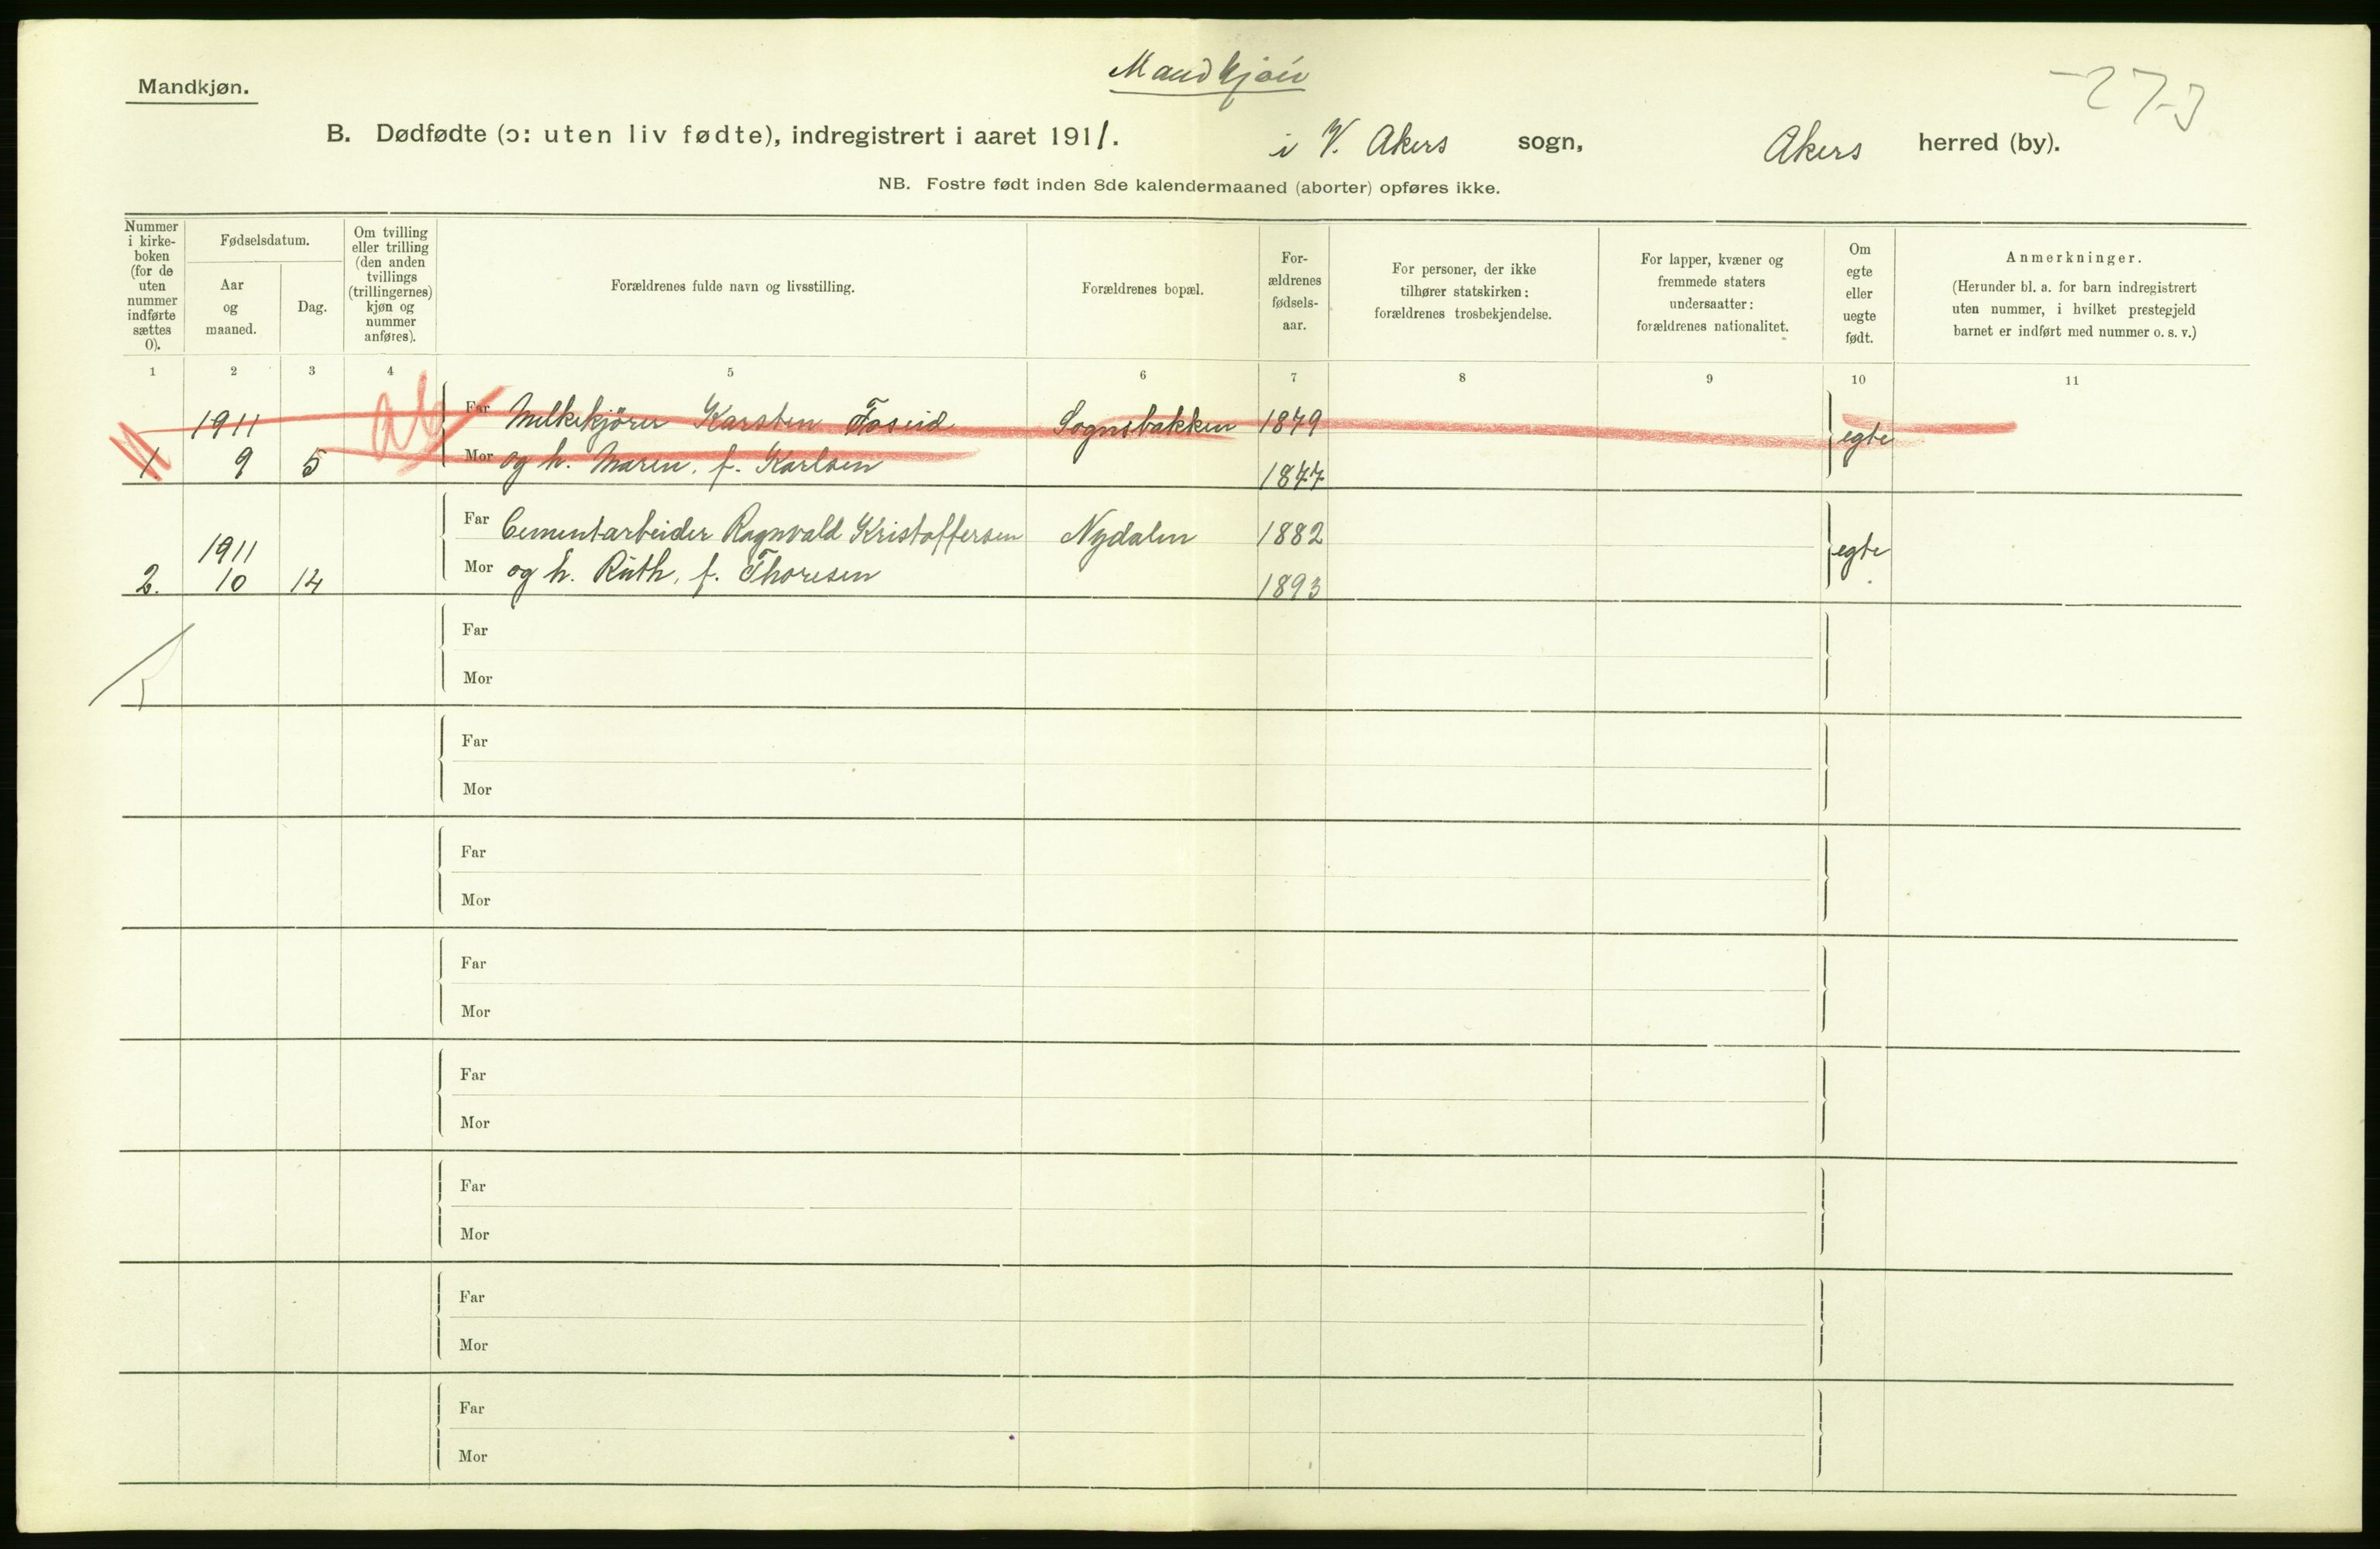 Mandkjøn
Mandkjøn.
-27-3
B. Dødfødte (ɔ: uten liv fødte), indregistrert i aaret 1911. i V. Akers sogn, Akers herred (by).
NB. Fostre født inden 8de kalendermaaned (aborter) opføres ikke.
Nummer
i kirke-
boken
(for de
uten
nummer
indførte
sættes
0).
Fødselsdatum.
Aar
og
maaned.
Dag.
Om tvilling
eller trilling
(den anden
tvillings
(trillingernes)
kjøn og
nummer
anføres).
Forældrenes fulde navn og livsstilling.
Forældrenes bopæl.
For-
ældrenes
fødsels-
aar.
For personer, der ikke
tilhører statskirken:
forældrenes trosbekjendelse.
For lapper, kvæner og
fremmede staters
undersaatter:
forældrenes nationalitet.
Om
egte
eller
uegte
født.
Anmerkninger.
(Herunder bl. a. for barn indregistrert
uten nummer, i hvilket prestegjeld
barnet er indført med nummer o. s. v.)
1 2 3 4 5 6 7 8 9 10 11
1911 Far Melkekjörer Karsten Foseid Sognsbakken 1879 egte
1 9 5 Mor og h. Maren, f. Karlsen 1877
1911 Far Cementarbeider Ragnvald Kristoffersen Nydalen 1882 egte
2. 10 14 Mor og h. Ruth, f. Thoresen 1893
Far
Mor
Far
Mor
Far
Mor
Far
Mor
Far
Mor
Far
Mor
Far
Mor
Far
Mor